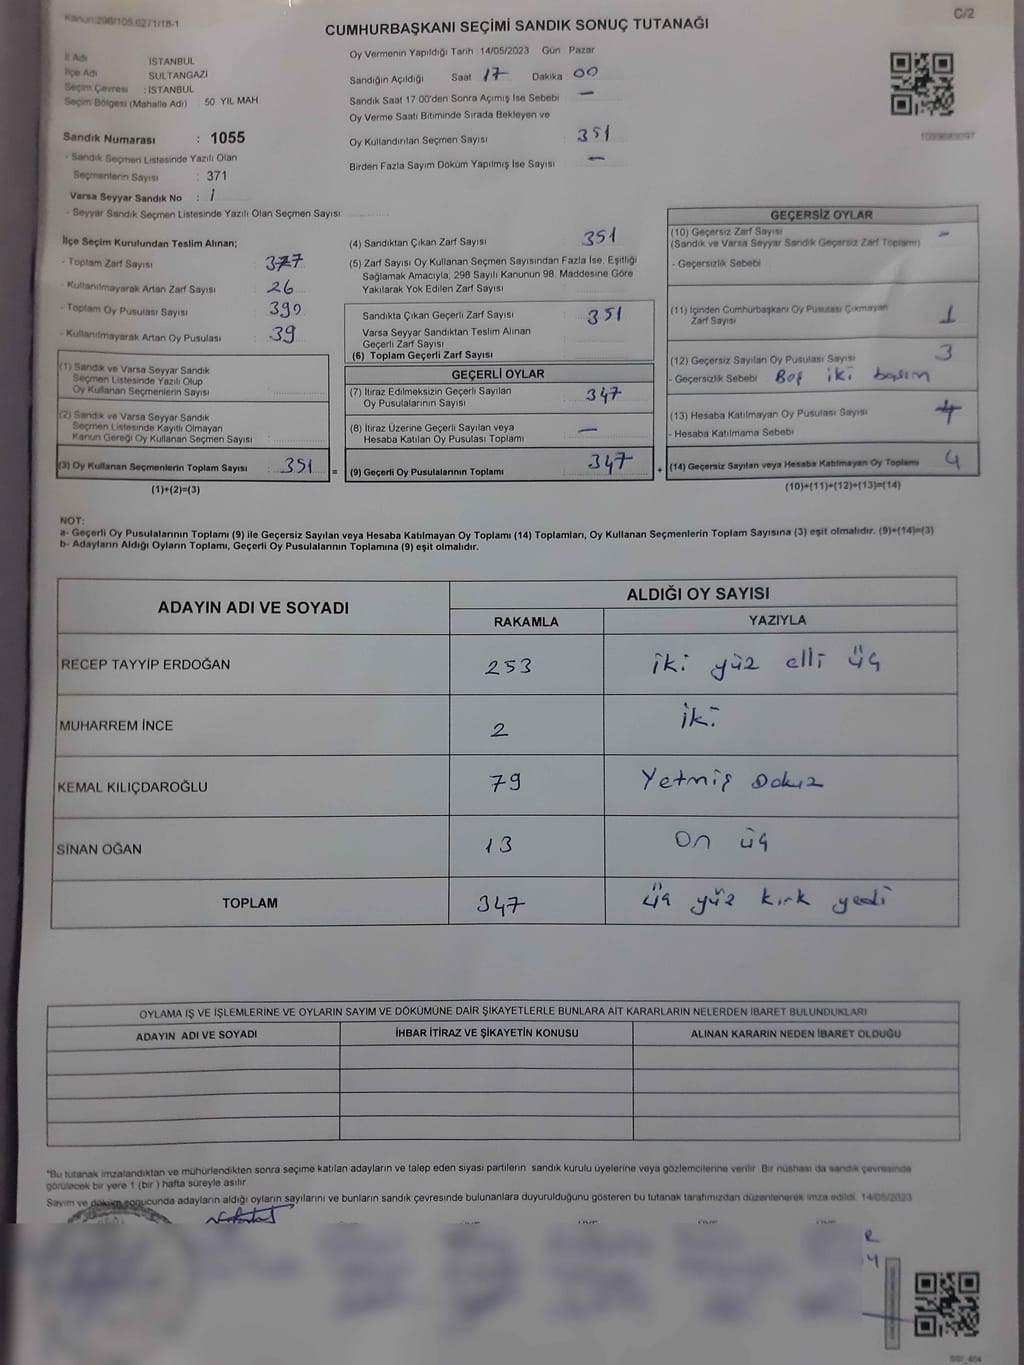 Kanun:298/105.6271/18-1
C/2
CUMHURBAŞKANI SEÇİMİ SANDIK SONUÇ TUTANAĞI
İl Adı İSTANBUL
İlçe Adı SULTANGAZİ
Seçim Çevresi : İSTANBUL
Seçim Bölgesi (Mahalle Adı) 50 YIL MAH
Sandık Numarası : 1055
- Sandık Seçmen Listesinde Yazılı Olan
Seçmenlerin Sayısı : 371
Varsa Seyyar Sandık No : /
- Seyyar Sandık Seçmen Listesinde Yazılı Olan Seçmen Sayısı:
Oy Vermenin Yapıldığı Tarih 14/05/2023 Gün Pazar
Sandığın Açıldığı Saat 17 Dakika 00
Sandık Saat 17.00'den Sonra Açımış İse Sebebi —
Oy Verme Saati Bitiminde Sırada Bekleyen ve
Oy Kullandırılan Seçmen Sayısı : 351
Birden Fazla Sayım Döküm Yapılmış İse Sayısı —
İlçe Seçim Kurulundan Teslim Alınan;
- Toplam Zarf Sayısı : 377
- Kullanılmayarak Artan Zarf Sayısı : 26
- Toplam Oy Pusulası Sayısı : 390
- Kullanılmayarak Artan Oy Pusulası : 39
(1) Sandık ve Varsa Seyyar Sandık
Seçmen Listesinde Yazılı Olup
Oy Kullanan Seçmenlerin Sayısı
(2) Sandık ve Varsa Seyyar Sandık
Seçmen Listesinde Kayıtlı Olmayan
Kanun Gereği Oy Kullanan Seçmen Sayısı
(3) Oy Kullanan Seçmenlerin Toplam Sayısı : 351 =
(1)+(2)=(3)
(4) Sandıktan Çıkan Zarf Sayısı : 351
(5) Zarf Sayısı Oy Kullanan Seçmen Sayısından Fazla İse, Eşitliği
Sağlamak Amacıyla, 298 Sayılı Kanunun 98. Maddesine Göre
Yakılarak Yok Edilen Zarf Sayısı :
Sandıkta Çıkan Geçerli Zarf Sayısı : 351
Varsa Seyyar Sandıktan Teslim Alınan
Geçerli Zarf Sayısı
(6) Toplam Geçerli Zarf Sayısı
GEÇERLİ OYLAR
(7) İtiraz Edilmeksizin Geçerli Sayılan
Oy Pusulalarının Sayısı : 347
(8) İtiraz Üzerine Geçerli Sayılan veya
Hesaba Katılan Oy Pusulası Toplamı : —
(9) Geçerli Oy Pusulalarının Toplamı : 347 +
GEÇERSİZ OYLAR
(10) Geçersiz Zarf Sayısı
(Sandık ve Varsa Seyyar Sandık Geçersiz Zarf Toplamı) -
- Geçersizlik Sebebi
(11) İçinden Cumhurbaşkanı Oy Pusulası Çıkmayan
Zarf Sayısı 1
(12) Geçersiz Sayılan Oy Pusulası Sayısı 3
- Geçersizlik Sebebi Boş iki basım
(13) Hesaba Katılmayan Oy Pusulası Sayısı
- Hesaba Katılmama Sebebi
(14) Geçersiz Sayılan veya Hesaba Katılmayan Oy Toplamı 4
(10)+(11)+(12)+(13)=(14)
NOT:
a- Geçerli Oy Pusulalarının Toplamı (9) ile Geçersiz Sayılan veya Hesaba Katılmayan Oy Toplamı (14) Toplamları, Oy Kullanan Seçmenlerin Toplam Sayısına (3) eşit olmalıdır. (9)+(14)=(3)
b- Adayların Aldığı Oyların Toplamı, Geçerli Oy Pusulalarının Toplamına (9) eşit olmalıdır.
ADAYIN ADI VE SOYADI ALDIĞI OY SAYISI
RAKAMLA YAZIYLA
RECEP TAYYİP ERDOĞAN 253 iki yüz elli üç
MUHARREM İNCE 2 iki
KEMAL KILIÇDAROĞLU 79 Yetmiş Dokuz
SİNAN OĞAN 13 On üç
TOPLAM 347 üç yüz kırk yedi
OYLAMA İŞ VE İŞLEMLERİNE VE OYLARIN SAYIM VE DÖKÜMÜNE DAİR ŞİKAYETLERLE BUNLARA AİT KARARLARIN NELERDEN İBARET BULUNDUKLARI
ADAYIN ADI VE SOYADI İHBAR İTİRAZ VE ŞİKAYETİN KONUSU ALINAN KARARIN NEDEN İBARET OLDUĞU
*Bu tutanak imzalandıktan ve mühürlendikten sonra seçime katılan adayların ve talep eden siyasi partilerin sandık kurulu üyelerine veya gözlemcilerine verilir. Bir nüshası da sandık çevresinde
görülecek bir yere 1 (bir) hafta süreyle asılır.
Sayım ve döküm sonucunda adayların aldığı oyların sayılarını ve bunların sandık çevresinde bulunanlara duyurulduğunu gösteren bu tutanak tarafımızdan düzenlenerek imza edildi. 14/05/2023